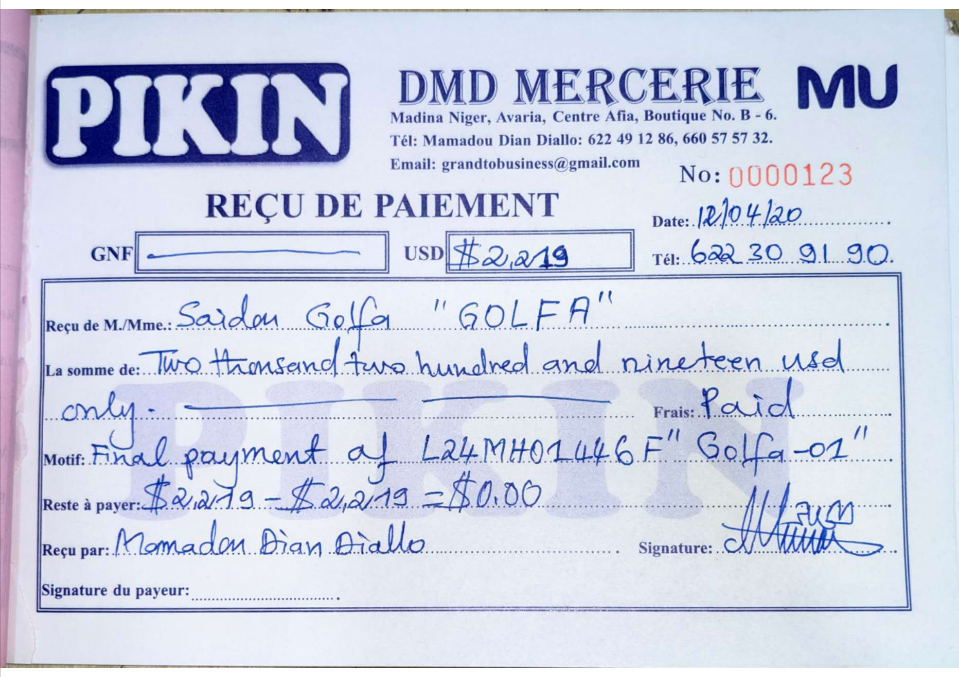 PIKIN
DMD MERCERIE
MU
Madina Niger, Avaria, Centre Afia, Boutique No. B - 6.
Tél: Mamadou Dian Diallo: 622 49 12 86, 660 57 57 32.
Email: grandtobusiness@gmail.com
No: 0000123
REÇU DE PAIEMENT
Date: 12/04/20
GNF USD $2,219
Tél: 622 30 91 90.
Reçu de M./Mme.: Saidou Golfa "GOLFA"
La somme de: Two thousand two hundred and nineteen usd
only. Frais: Paid
Motif: Final payment of L24MH01446F "Golfa-01"
Reste à payer: $2,219 - $2,219 = $0.00
Reçu par: Mamadou Dian Diallo Signature:
Signature du payeur:
PIKIN